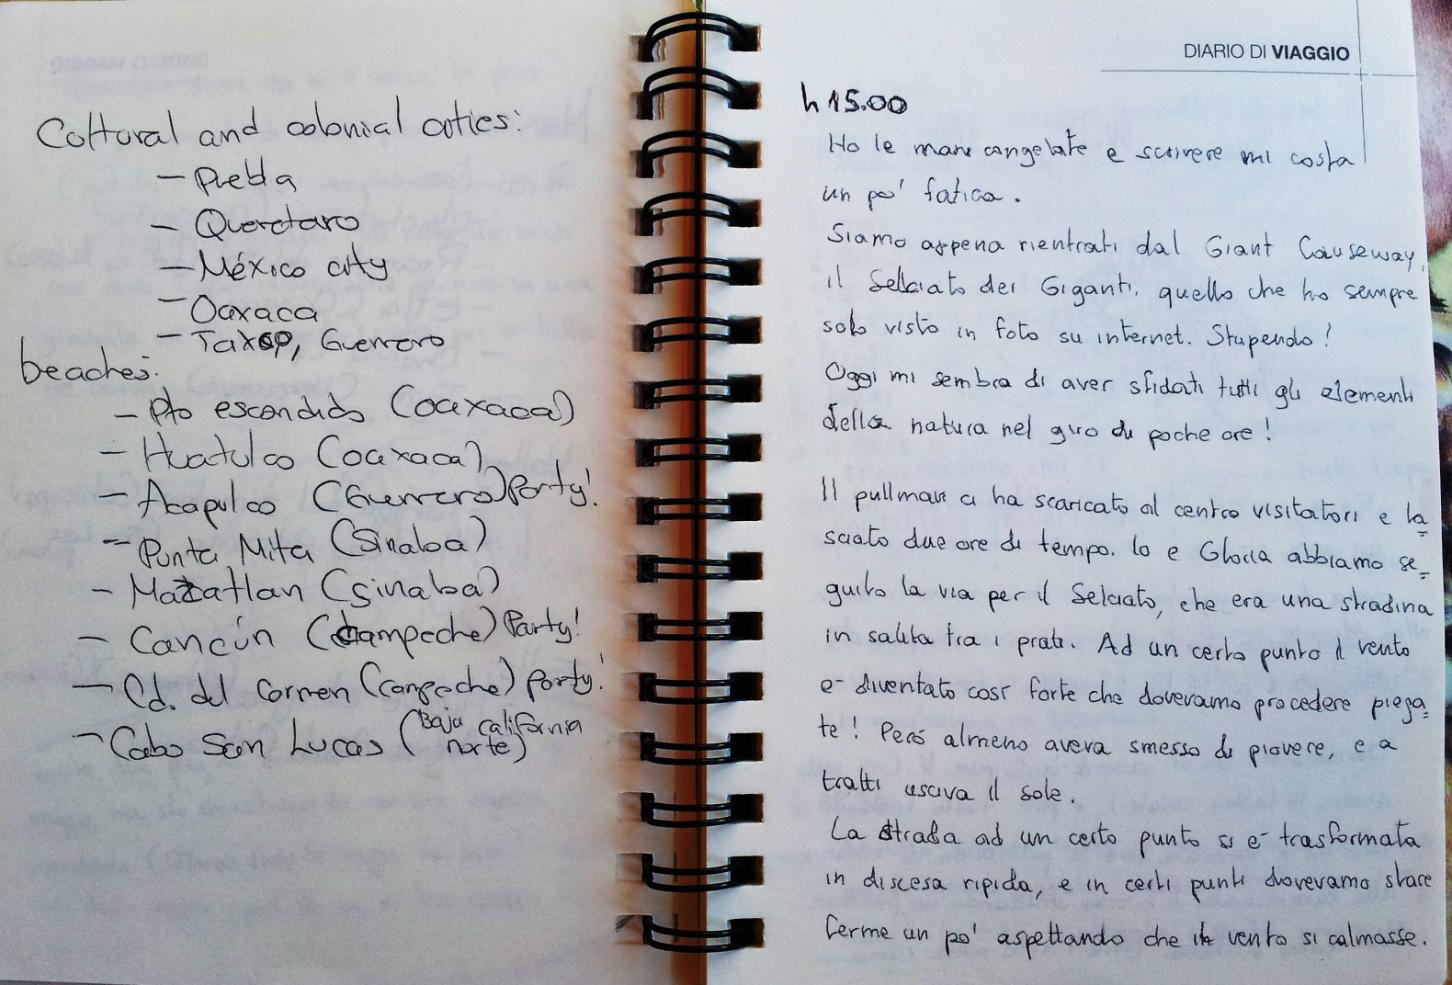 Coltural and colonial cities:
- Puebla
- Queretaro
- México city
- Oaxaca
- Taxco, Guerrero
beaches:
- Pto escondido (oaxaca)
- Huatulco (oaxaca)
- Acapulco (Guerrero) Party!
- Punta Mita (Sinaloa)
- Mazatlan (sinaloa)
- Cancún (Campeche) Party!
- Cd. del Carmen (campeche) party!
- Cabo San Lucas (Baja california
norte)
DIARIO DI VIAGGIO
h 15.00
Ho le mani congelate e scrivere mi costa
un po' fatica.
Siamo appena rientrati dal Giant Causeway,
il Selciato dei Giganti, quello che ho sempre
solo visto in foto su internet. Stupendo!
Oggi mi sembra di aver sfidati tutti gli elementi
della natura nel giro di poche ore!
Il pullman ci ha scaricato al centro visitatori e la=
sciato due ore di tempo. Io e Gloria abbiamo se=
guito la via per il Selciato, che era una stradina
in salita tra i prati. Ad un certo punto il vento
e- diventato così forte che dovevamo procedere piega=
te! Però almeno aveva smesso di piovere, e a
tratti usciva il sole.
La strada ad un certo punto si e- trasformata
in discesa ripida, e in certi punti dovevamo stare
ferme un po' aspettando che il vento si calmasse.